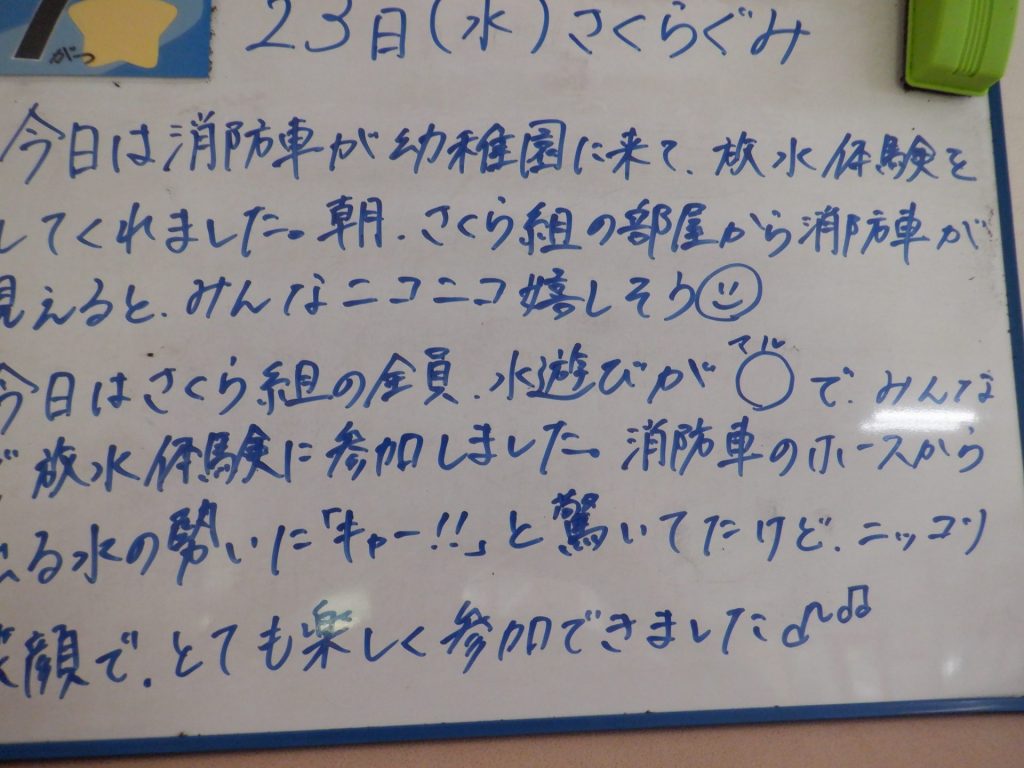 7 がつ 23日(水)さくらぐみ
今日は消防車が幼稚園に来て、放水体験を
してくれました。朝、さくら組の部屋から消防車が
見えると、みんなニコニコ嬉しそう
マル
今日はさくら組の全員、水遊びが〇で、みんな
で放水体験に参加しました。消防車のホースから
出る水の勢いに「キャー!!」と驚いてたけど、ニッコリ
笑顔で、とても楽しく参加できました♪♫